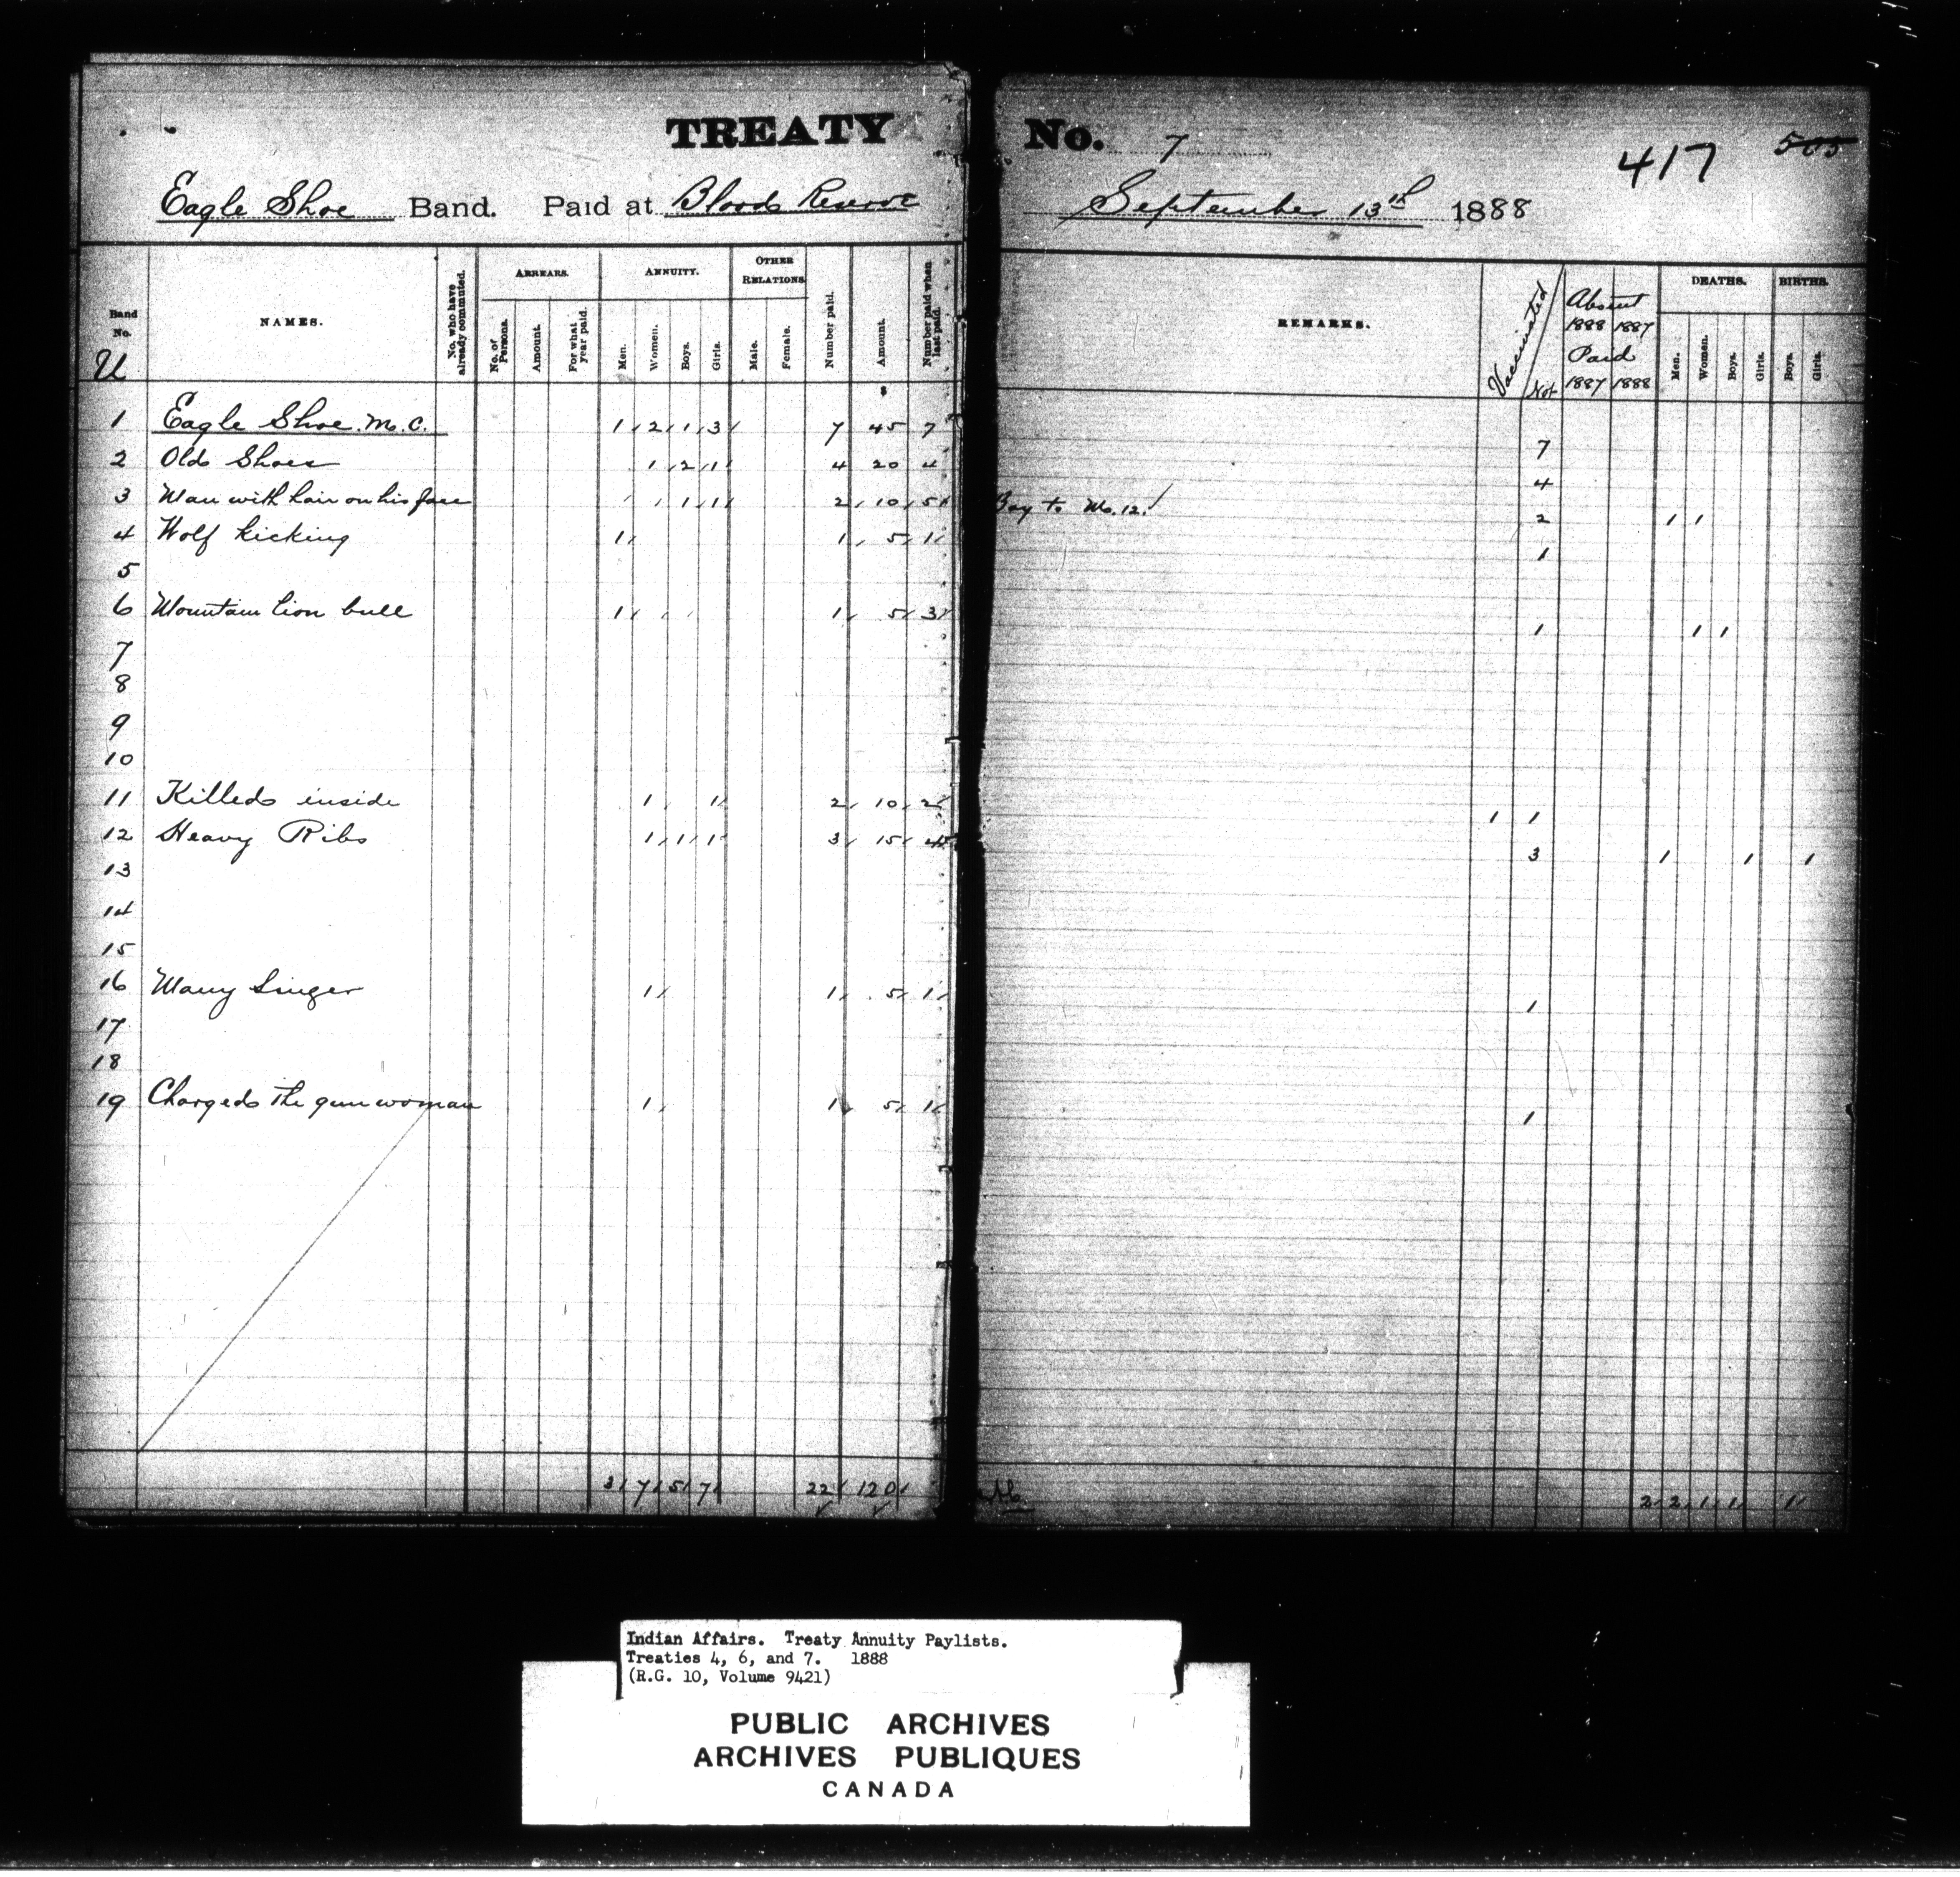 TREATY No. 7
417 505
Eagle Shoe Band. Paid at Blood Reserve September 13th 1888
Band No. U NAMES. No. who have already commuted. ARREARS. No. of Persons. Amount. For what year paid. ANNUITY. Men. Women. Boys. Girls. OTHER RELATIONS Male. Female. Number paid. Amount. Number paid when last paid. REMARKS. Vaccinated / Not Absent 1888 1887 Paid 1887 1888 DEATHS. Men. Women. Boys. Girls. BIRTHS. Boys. Girls.
$
1 Eagle Shoe. M. C. 1 2 1 3 7 45 7 7
2 Old Shoes 1 2 1 4 20 4 4
3 Man with hair on his face 1 1 2 10 5 Boy to No. 12. 2 1 1
4 Wolf kicking 1 1 5 1 1
5
6 Mountain lion bull 1 1 5 3 1 1 1
7
8
9
10
11 Killed inside 1 1 2 10 2 1 1
12 Heavy Ribs 1 1 1 3 15 4 3 1 1 1
13
14
15
16 Many Singer 1 1 5 1 1
17
18
19 Charged the gun woman 1 1 5 1 1
3 7 5 7 22 120 2 2 1 1 1
Indian Affairs. Treaty Annuity Paylists.
Treaties 4, 6, and 7. 1888
(R.G. 10, Volume 9421)
PUBLIC ARCHIVES
ARCHIVES PUBLIQUES
CANADA